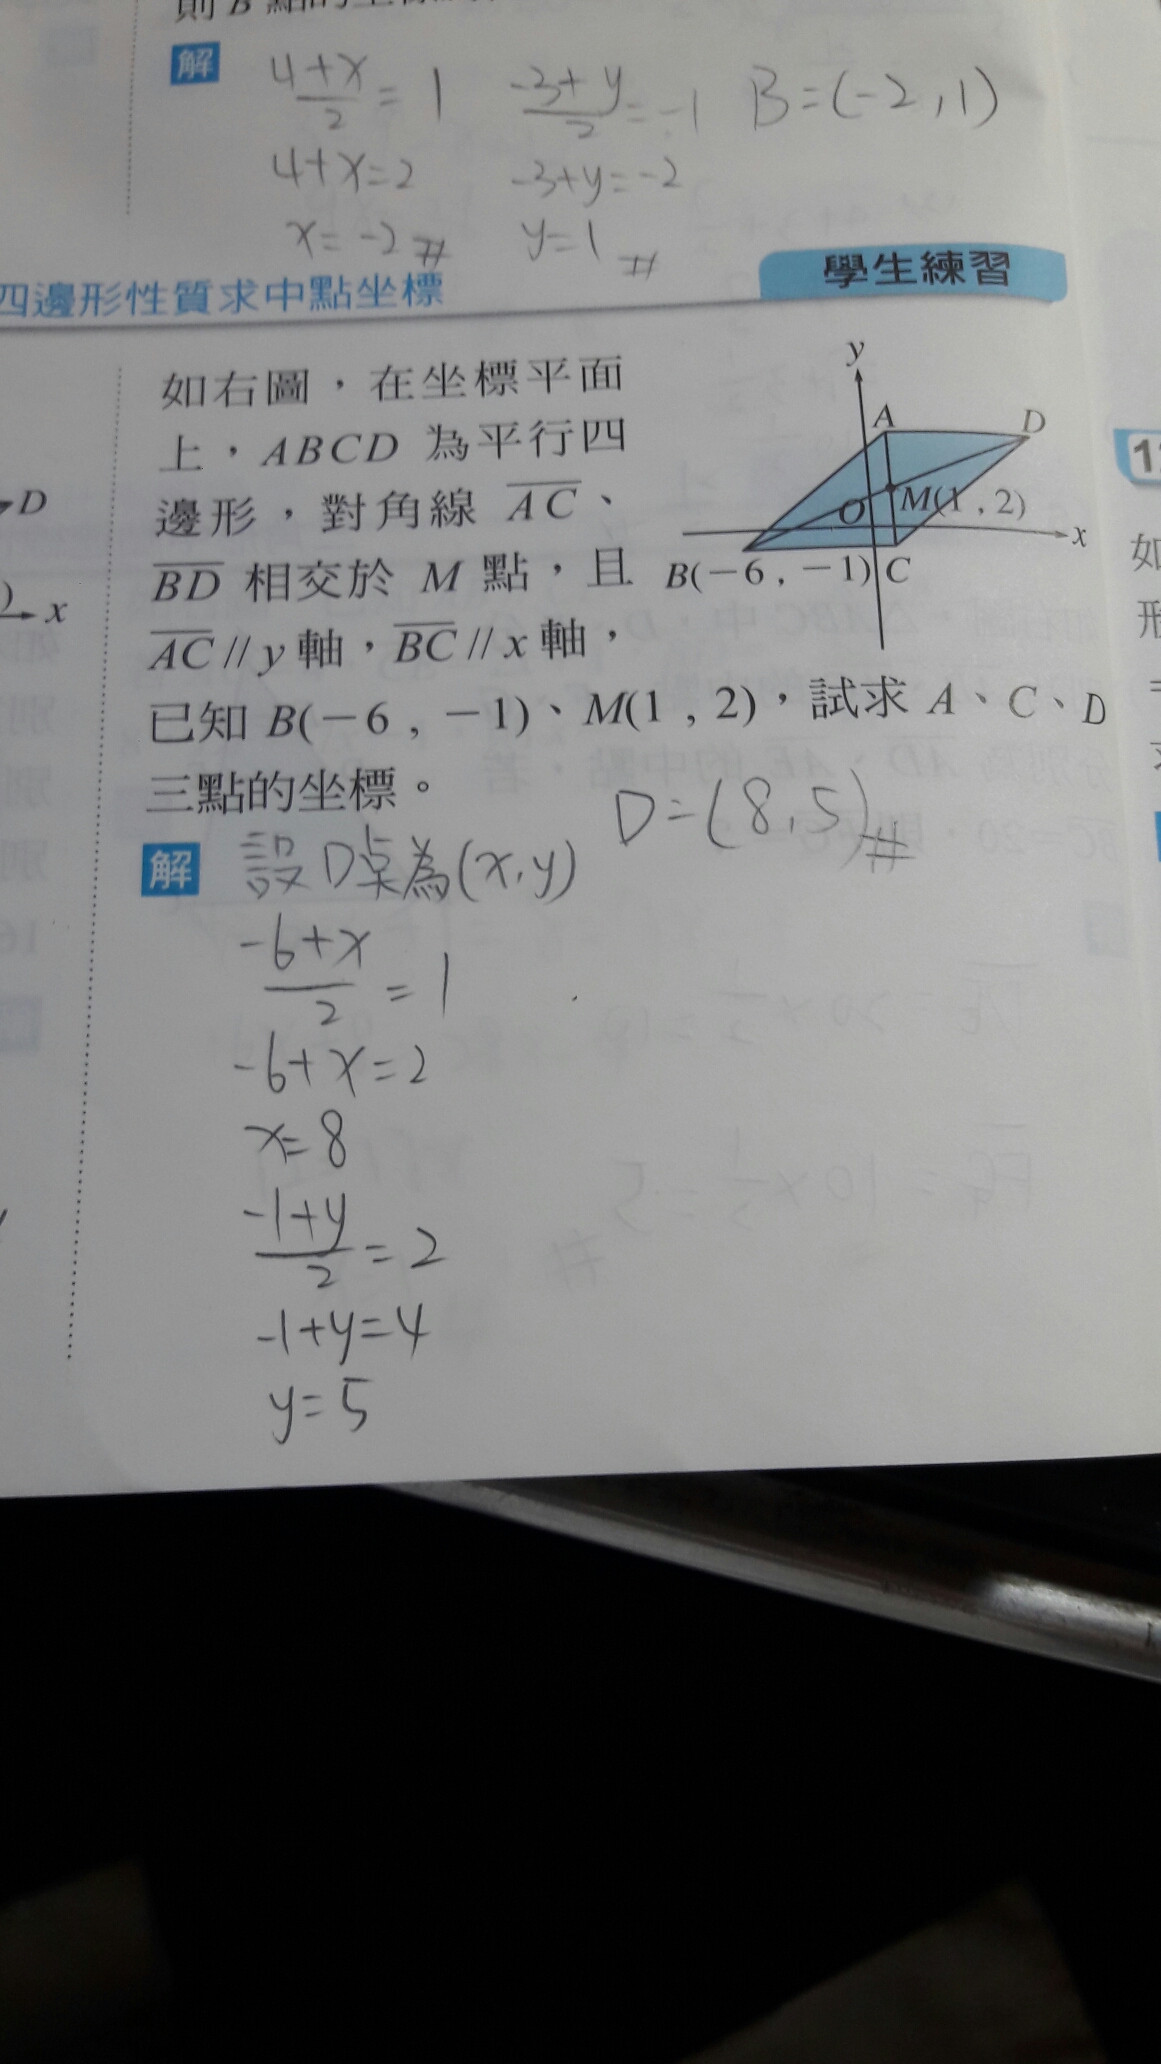 則 B 點的坐標
解
4+x/2 = 1 -3+y/2 = -1 B=(-2,1)
4+x=2 -3+y=-2
x=-2 # y=1 #
四邊形性質求中點坐標 學生練習
如右圖，在坐標平面
上，ABCD 為平行四
邊形，對角線 AC、
BD 相交於 M 點，且
AC // y 軸，BC // x 軸，
已知 B(−6 , −1)、M(1 , 2)，試求 A、C、D
三點的坐標。
y
A D
O M(1 , 2)
x
B(−6 , −1) C
D=(8,5)#
解 設D桌為(x,y)
-6+x/2 = 1
-6+x=2
x=8
-1+y/2 = 2
-1+y=4
y=5
D
) x
1
如
形